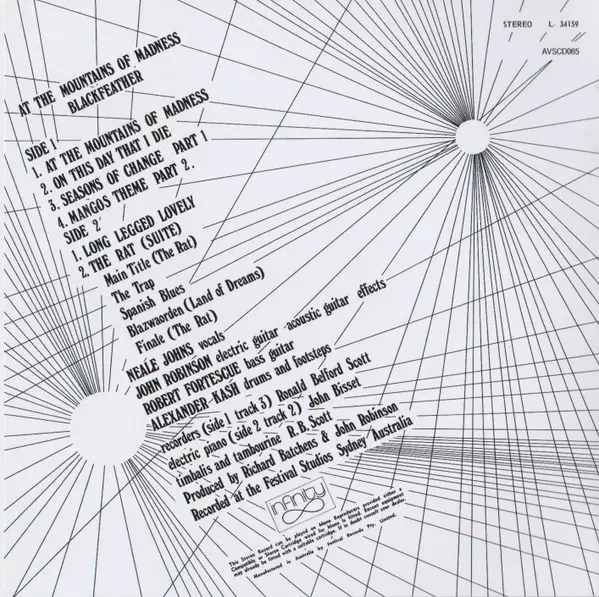 STEREO L 34159
AVSCD065
AT THE MOUNTAINS OF MADNESS
BLACKFEATHER
SIDE 1
1. AT THE MOUNTAINS OF MADNESS
2. ON THIS DAY THAT I DIE
3. SEASONS OF CHANGE PART 1
4. MANGOS THEME PART 2.
SIDE 2
1. LONG LEGGED LOVELY
2. THE RAT (SUITE)
Main Title (The Rat)
The Trap
Spanish Blues
Blazwaorden (Land of Dreams)
Finale (The Rat)
NEALE JOHNS vocals
JOHN ROBINSON electric guitar acoustic guitar effects
ROBERT FORTESCUE bass guitar
ALEXANDER KASH drums and footsteps
recorders (side 1 track 3) Ronald Belford Scott
electric piano (side 2 track 2) John Bisset
timbalis and tambourine R.B. Scott
Produced by Richard Batchens & John Robinson
Recorded at the Festival Studios Sydney Australia
infinity
This Stereo Record can be played on Mono Reproducers provided either a
Compatible or Stereo Cartridge wired for Mono is fitted. Recent equipment
may already be fitted with a suitable cartridge. If in doubt consult your dealer.
Manufactured in Australia by Festival Records Pty. Limited.